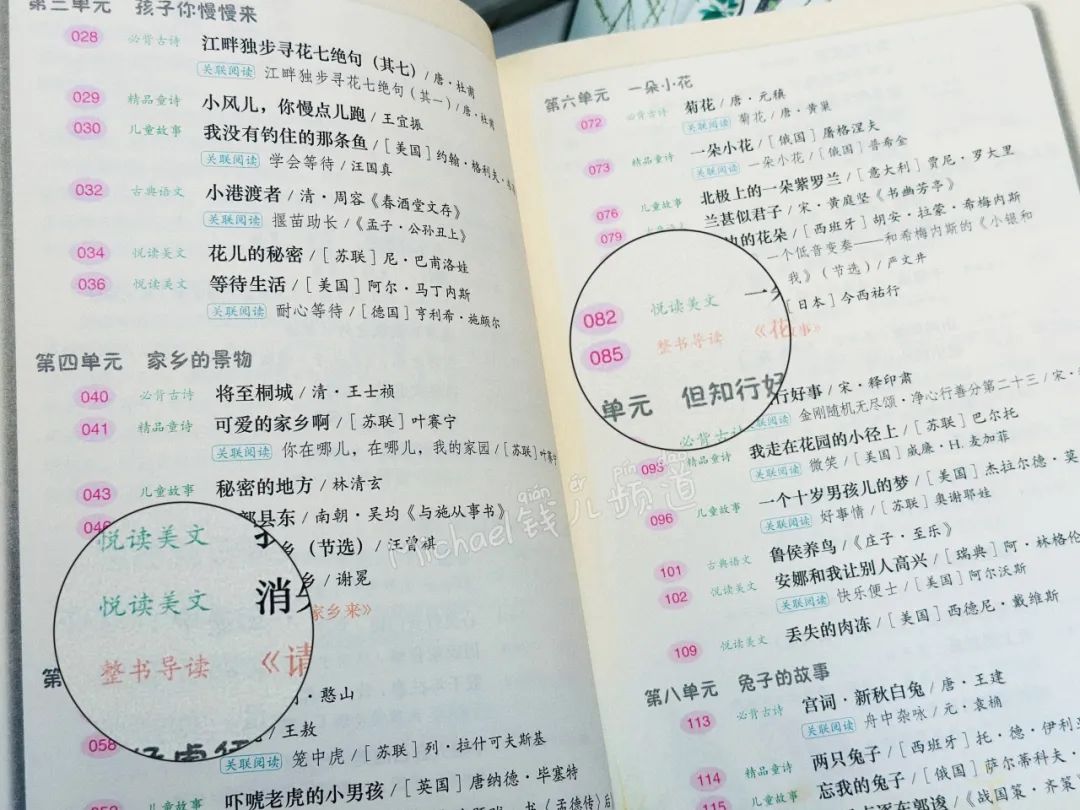 第三单元 孩子你慢慢来
028 必背古诗 江畔独步寻花七绝句（其七）/ 唐·杜甫
关联阅读 江畔独步寻花七绝句（其一）/ 唐·杜甫
029 精品童诗 小风儿，你慢点儿跑 / 王宜振
030 儿童故事 我没有钓住的那条鱼 / ［美国］约翰·格利夫·
关联阅读 学会等待 / 汪国真
032 古典语文 小港渡者 / 清·周容《春酒堂文存》
关联阅读 揠苗助长 /《孟子·公孙丑上》
034 悦读美文 花儿的秘密 / ［苏联］尼·巴甫洛娃
036 悦读美文 等待生活 / ［美国］阿尔·马丁内斯
关联阅读 耐心等待 / ［德国］亨利希·施颇尔
第四单元 家乡的景物
040 必背古诗 将至桐城 / 清·王士祯
041 精品童诗 可爱的家乡啊 / ［苏联］叶赛宁
关联阅读 你在哪儿，在哪儿，我的家园 / ［苏联］叶赛宁
043 儿童故事 秘密的地方 / 林清玄
县东 / 南朝·吴均《与施从事书》
悦读美文 乡（节选）/ 汪曾祺
悦读美文 消 乡 / 谢冕
整书导读 《请 家乡来》
第
·憨山
058 / 王敖
关联阅读 笼中虎 / ［苏联］列·拉什可夫斯基
儿童故事 吓唬老虎的小男孩 / ［英国］唐纳德·毕塞特
第六单元 一朵小花
072 必背古诗 菊花 / 唐·元稹
关联阅读 菊花 / 唐·黄巢
073 精品童诗 一朵小花 / ［俄国］屠格涅夫
关联阅读 一朵小花 / ［俄国］普希金
076 儿童故事 北极上的一朵紫罗兰 / ［意大利］贾尼·罗大里
079 兰甚似君子 / 宋·黄庭坚《书幽芳亭》
边的花朵 / ［西班牙］胡安·拉蒙·希梅内斯
一个低音变奏——和希梅内斯的《小银和
我》（节选）/ 严文井
082 悦读美文 一 ［日本］今西祐行
085 整书导读 《花 故事》
单元 但知行好
必背古诗 行好事 / 宋·释印肃
关联阅读 金刚随机无尽颂·净心行善分第二十三 / 宋·
093 精品童诗 我走在花园的小径上 / ［苏联］巴尔托
关联阅读 微笑 / ［美国］威廉·H. 麦加菲
096 儿童故事 一个十岁男孩儿的梦 / ［美国］杰拉尔德·莫
关联阅读 好事情 / ［苏联］奥谢耶娃
101 古典语文 鲁侯养鸟 /《庄子·至乐》
102 悦读美文 安娜和我让别人高兴 / ［瑞典］阿·林格伦
关联阅读 快乐便士 / ［美国］阿尔沃斯
109 悦读美文 丢失的肉冻 / ［美国］西德尼·戴维斯
第八单元 兔子的故事
113 必背古诗 宫词·新秋白兔 / 唐·王建
关联阅读 舟中杂咏 / 元·袁桷
114 精品童诗 两只兔子 / ［西班牙］托·德·伊利
115 儿童故事 忘我的兔子 / ［俄国］萨尔蒂科夫·
《战国策·齐策》
qián ér pín dào
Michael钱儿频道